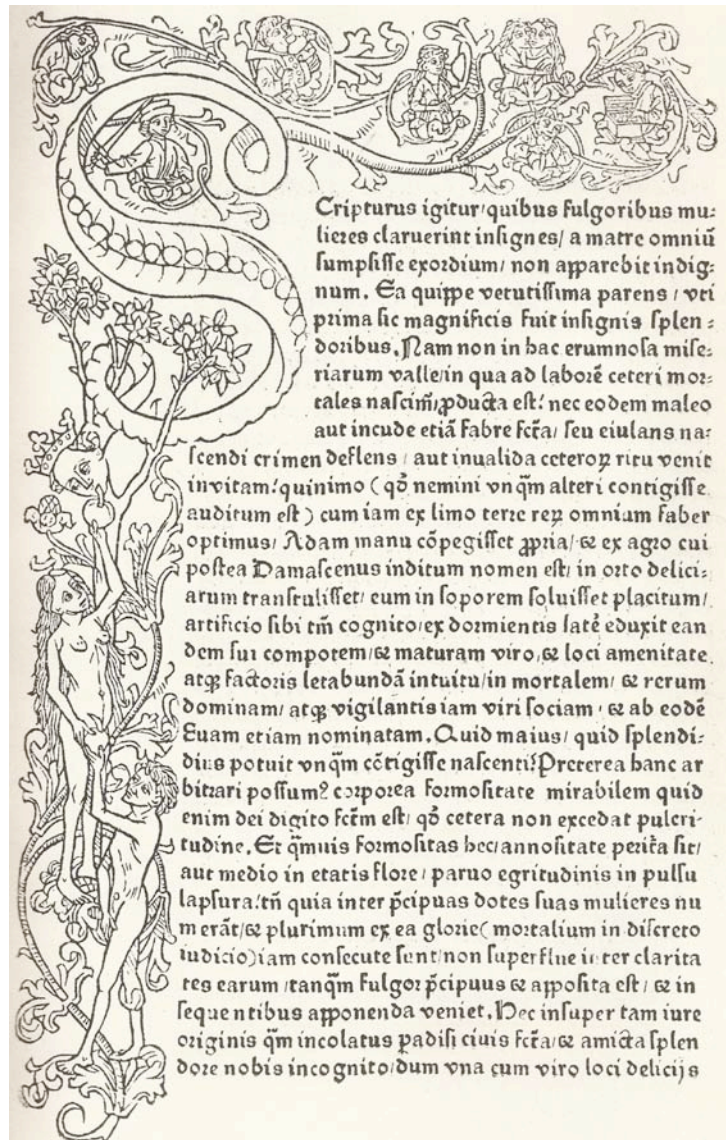 Cripturus igitur/quibus fulgoribus mu⸗
lieres claruerint insignes/ a matre omniū
sumpsisse exordium/ non apparebit indig⸗
num. Ea quippe vetutissima parens / vti
prima sic magnificis fuit insignis splen⸗
doribus. Nam non in hac erumnosa mise⸗
riarum valle/in qua ad laborē ceteri mor⸗
tales nascim̄/ꝓducta est: nec eodem maleo
aut incude etiā fabre fcr̄a/ seu eiulans na⸗
scendi crimen deflens / aut inualida ceteroꝝ ritu venit
in vitam: quinimo ( qō nemini vnq̄m alteri contigisse
auditum est ) cum iam ex limo terre reꝝ omnium faber
optimus/ Adam manu cōpegisset ꝓpria/ ⁊ ex agro cui
postea Damascenus inditum nomen est/ in orto delici⸗
arum transtulisset/ eum in soporem soluisset placitum/
artificio sibi tm̄ cognito/ex dormientis latē eduxit ean
dem sui compotem/⁊ maturam viro/⁊ loci amenitate
atqꝫ factoris letabundā intuitu/in mortalem/ ⁊ rerum
dominam/ atqꝫ vigilantis iam viri sociam ⸱ ⁊ ab eodē
Euam etiam nominatam. Quid maius/ quid splendi⸗
dius potuit vnq̄m cōtigisse nascenti: Preterea hanc ar
bitrari possumꝰ corporea formositate mirabilem quid
enim dei digito fcr̄m est/ qō cetera non excedat pulcri⸗
tudine. Et q̄muis formositas hec/annositate perit̄a sit/
aut medio in etatis flore / paruo egritudinis in pulsu
lapsura: tn̄ quia inter p̄cipuas dotes suas mulieres nu
merāt/⁊ plurimum ex ea glorie( mortalium in discreto
iudicio)iam consecute sunt/non superflue inter clarita
tes earum /tanq̄m fulgor p̄cipuus ⁊ apposita est / ⁊ in
sequentibus apponenda veniet. Hec insuper tam iure
originis q̄m incolatus ꝑadisi ciuis fcr̄a/⁊ amicta splen
dore nobis incognito/dum vna cum viro loci delicijs